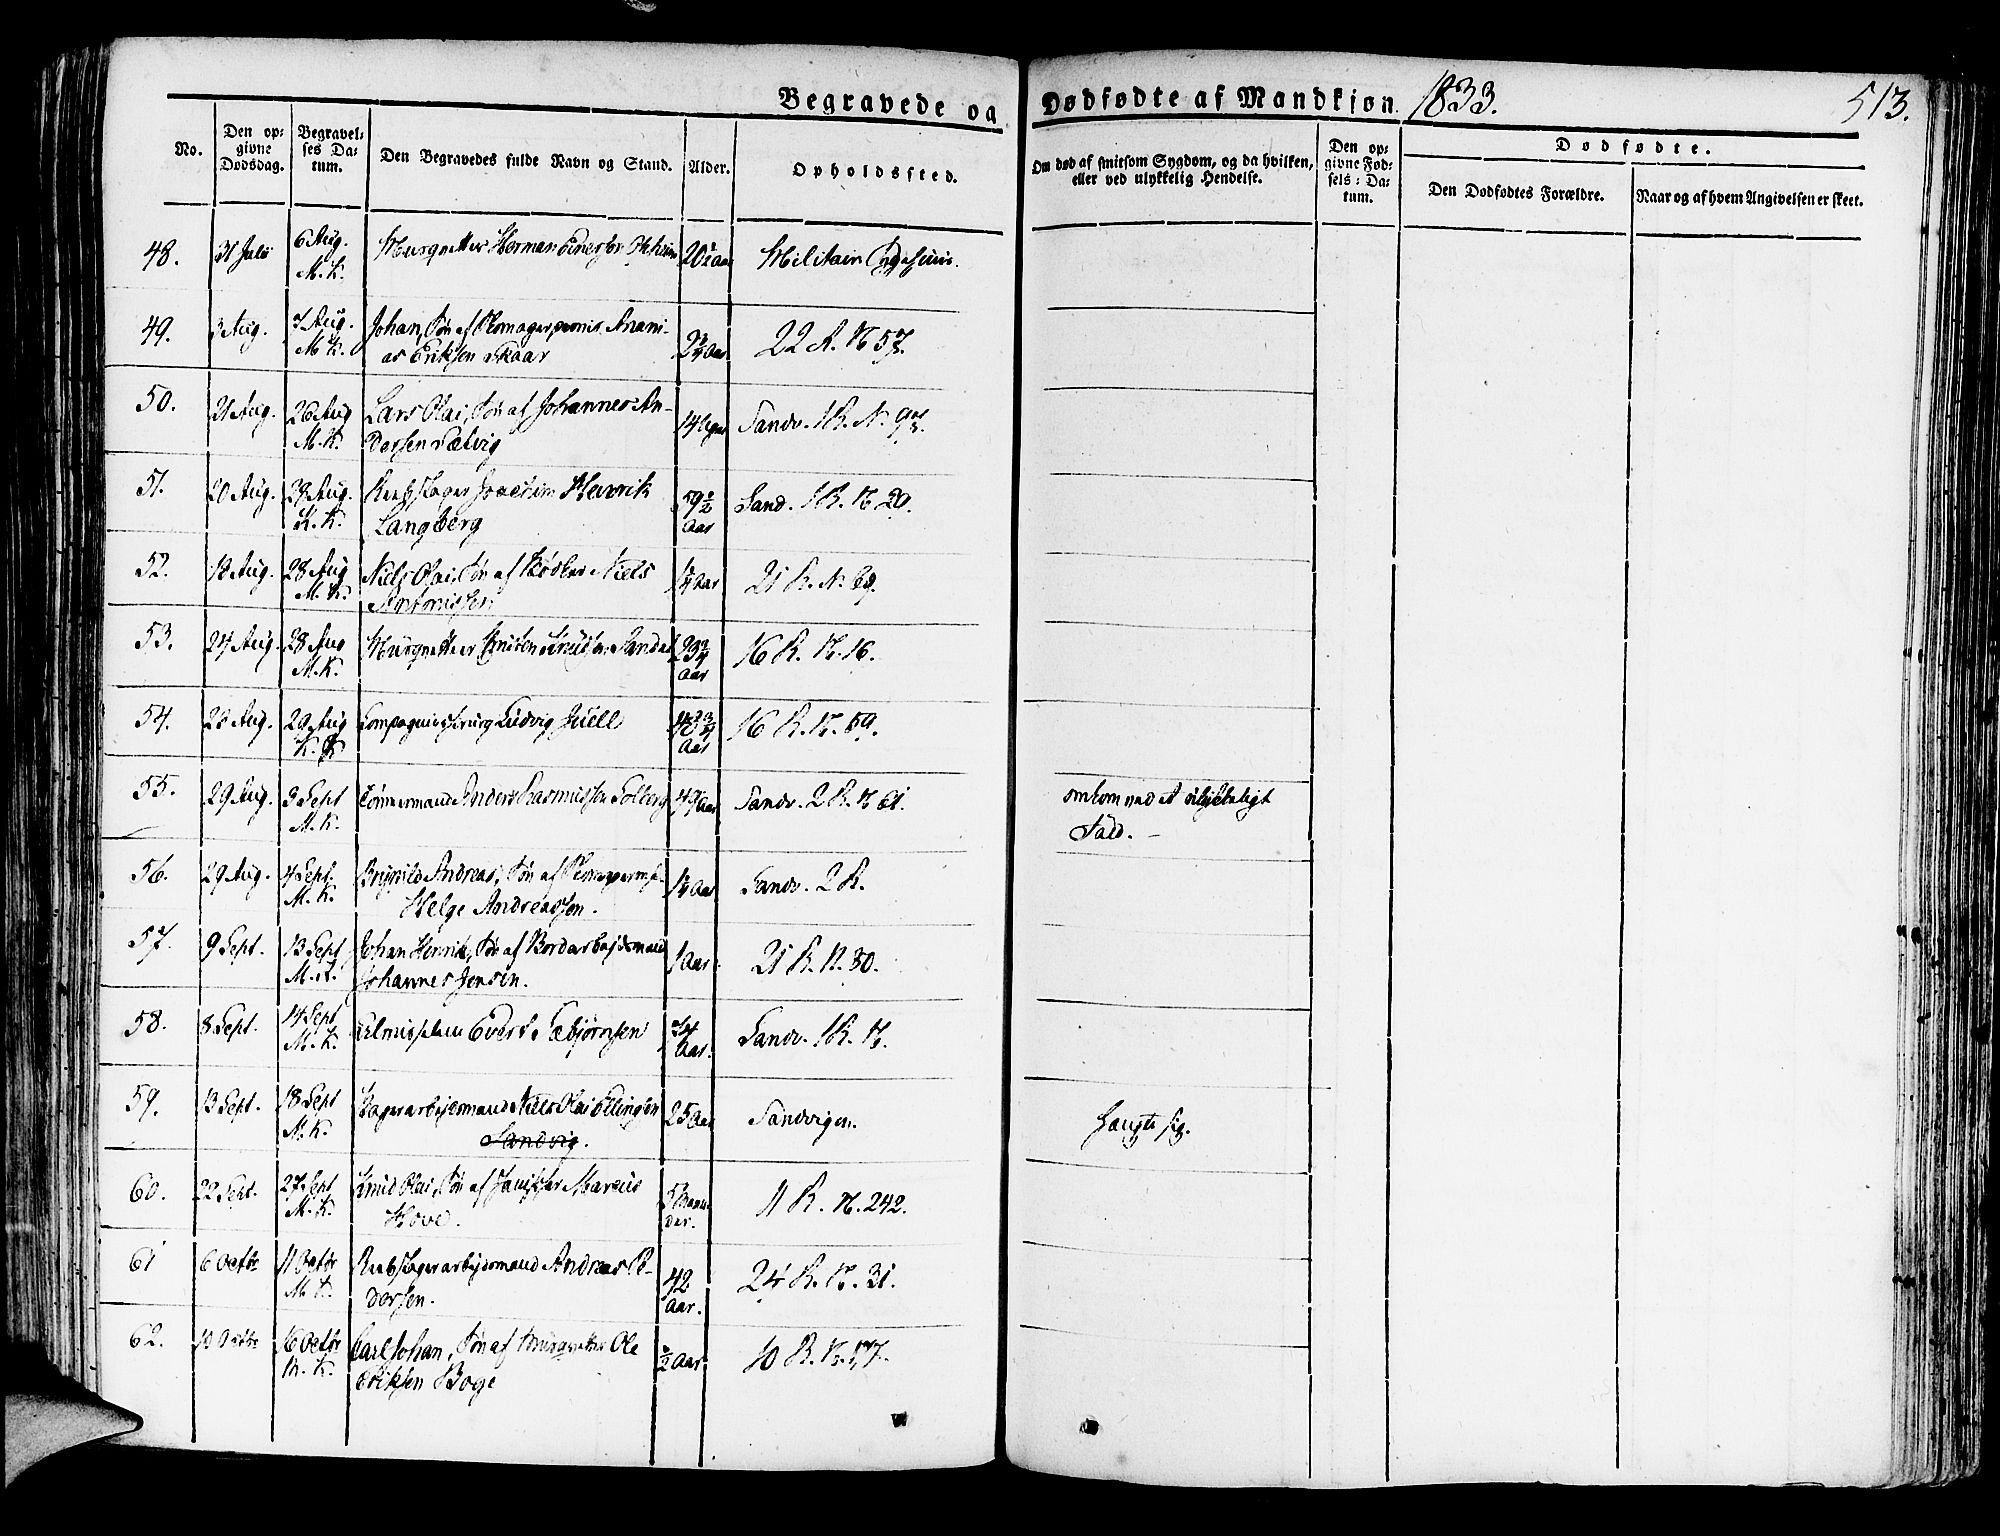 Begravede og Dødfødte af Mandkjøn. 1833. 513.
No.
Den opgivne Dødsdag.
Begravelses Datum.
Den Begravedes fulde Navn og Stand.
Alder.
Opholdssted.
Om død af smitsom Sygdom, og da hvilken, eller ved ulykkelig Hendelse.
Den opgivne Fødsels-Datum.
Dødfødte.
Den Dødfødtes Forældre.
Naar og af hvem Angivelsen er skeet.
48. 31 Juli 6 Aug. Murgnetter Herman 20½ Aar Militair
M. K.
49. 3 Aug. 7 Aug. Johan, Søn af Anani- 2¾ Aar 22 R. N 57.
M. K. as Eriksen Skaar
50. 21 Aug. 26 Aug Lars Olai, Søn af Johannes An- 14 Sandv. 1 R. N. 97.
M. K. dersen Sætvig
51. 20 Aug. 29 Aug. Rebslager Joachim Henrik 59½ Sand. 1 R. N 20.
K. K. Langberg Aar
52. 18 Aug. 28 Aug Niels Olai, Søn af Bødker Niels ¼ Aar 21 R. N. 69.
M. K. Antonissen
53. 24 Aug. 28 Aug Murgnetter Knudsen 29¾ 16 R. N. 16.
M. K. Aar
54. 23 Aug. 29 Aug Compagniechirurg Ludvig Juell 16 R. N. 59.
K. K. Aar
55. 29 Aug. 3 Sept Tømmermand Anders Rasmussen Solberg 49 Aar Sandv. 2 R. N 61. omkom ved et ulykkeligt
M. K. Fald. –
56. 29 Aug. 4 Sept. Brynild Andreas, Søn af ¼ Aar Sandv. 2 R.
M. K. Helge Andreassen.
57. 9 Sept. 13 Sept Johan Henrik, Søn af Bordarbejdsmand 1 Aar. 21 R. N. 30.
M. K. Johannes Jensen.
58. 8 Sept. 14 Sept Almisselem Evert Sæbjørnsen 74 Sandv. 1 R. N.
M. K. Aar.
59. 13 Sept. 18 Sept Bagerarbejdsmand Niels Olai Ellingsen 25 Aar Sandvigen. Hængte sig.
M. K. Sandvig.
60. 22 Sept. 27 Sept Knud Olai, Søn af Marcus 5 Maane- 11 R. N. 242.
M. K. Hove. der.
61 6 Octbr 11 Octbr Rebslagerarbejdsmand Andreas Pe- 42 24 R. N. 31.
M. K. dersen. Aar.
62. 10 Octbr 16 Octbr Carl Johan, Søn af Murgnetter Ole ½ Aar. 10 R. N. 177.
M. K. Eriksen Boge